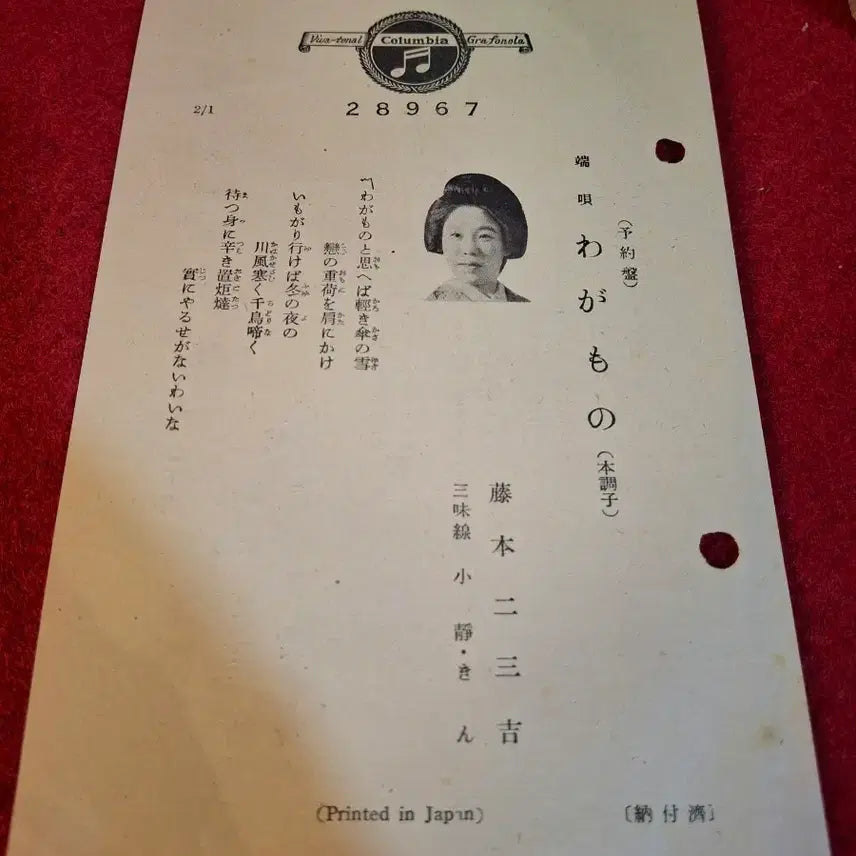 Viva-tonal Columbia Grafonola
28967
2/1
(予約盤)
端唄 わがもの (本調子)
藤本二三吉
三味線 小静・きん
〽わがものと思へば輕き傘の雪
戀の重荷を肩にかけ
いもがり行けば冬の夜の
川風寒く千鳥啼く
待つ身に辛き置炬燵
實にやるせがないわいな
(Printed in Japan)
〔納付濟〕